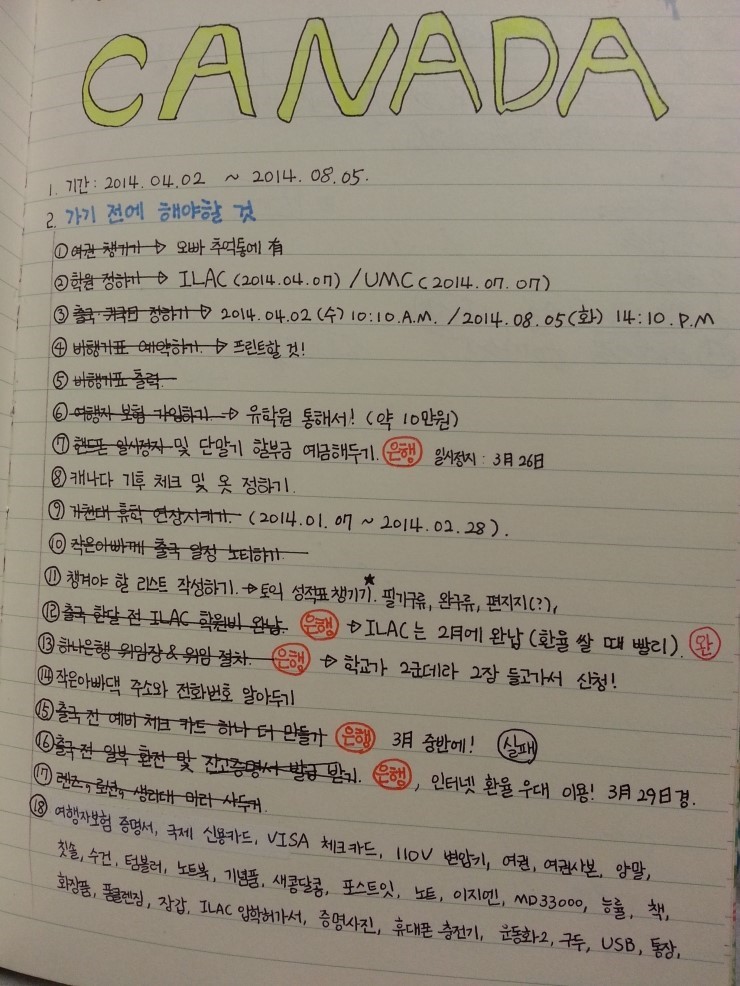 CANADA
1. 기간 : 2014. 04. 02 ~ 2014. 08. 05.
2. 가기 전에 해야할 것
① 여권 챙기기 → 오빠 추억통에 有
② 학원 정하기 → ILAC (2014.04.07) / UMC (2014.07.07)
③ 출국 귀국日 정하기 → 2014.04.02 (수) 10:10.A.M. / 2014.08.05 (화) 14:10.P.M
④ 비행기표 예약하기. → 프린트할 것!
⑤ 비행기표 출력.
⑥ 여행자 보험 가입하기. → 유학원 통해서! (약 10만원)
⑦ 핸드폰 일시정지 및 단말기 할부금 예금해두기. 은행 일시정지 : 3월 26日
⑧ 캐나다 기후 체크 및 옷 정하기.
⑨ 가천대 휴학 연장시키기. (2014.01.07 ~ 2014.02.28).
⑩ 작은아빠께 출국 일정 노티하기
⑪ 챙겨야 할 리스트 작성하기. → 토익 성적표 챙기기★. 필기구류, 완구류, 편지지(?),
⑫ 출국 한달 전 ILAC 학원비 완납. 은행 → ILAC는 2月에 완납 (환율 쌀 때 빨리). 완
⑬ 하나은행 위임장 & 위임 절차. 은행 → 학교가 2군데라 2장 들고가서 신청!
⑭ 작은아빠댁 주소와 전화번호 알아두기
⑮ 출국 전 예비 체크 카드 하나 더 만들기 은행 3月 중반에! 실패
⑯ 출국 전 일부 환전 및 잔고증명서 발급 받기. 은행, 인터넷 환율 우대 이용! 3月 29日경.
⑰ 렌즈, 로션, 생리대 미리 사두기.
⑱ 여행자보험 증명서, 국제 신용카드, VISA 체크카드, 110V 변압기, 여권, 여권사본, 양말,
칫솔, 수건, 텀블러, 노트북, 기념품, 새콤달콤, 포스트잇, 노트, 이지엔, MD33000, 능률, 책,
화장품, 폼클렌징, 장갑, ILAC 입학허가서, 증명사진, 휴대폰 충전기, 운동화2, 구두, USB, 통장,